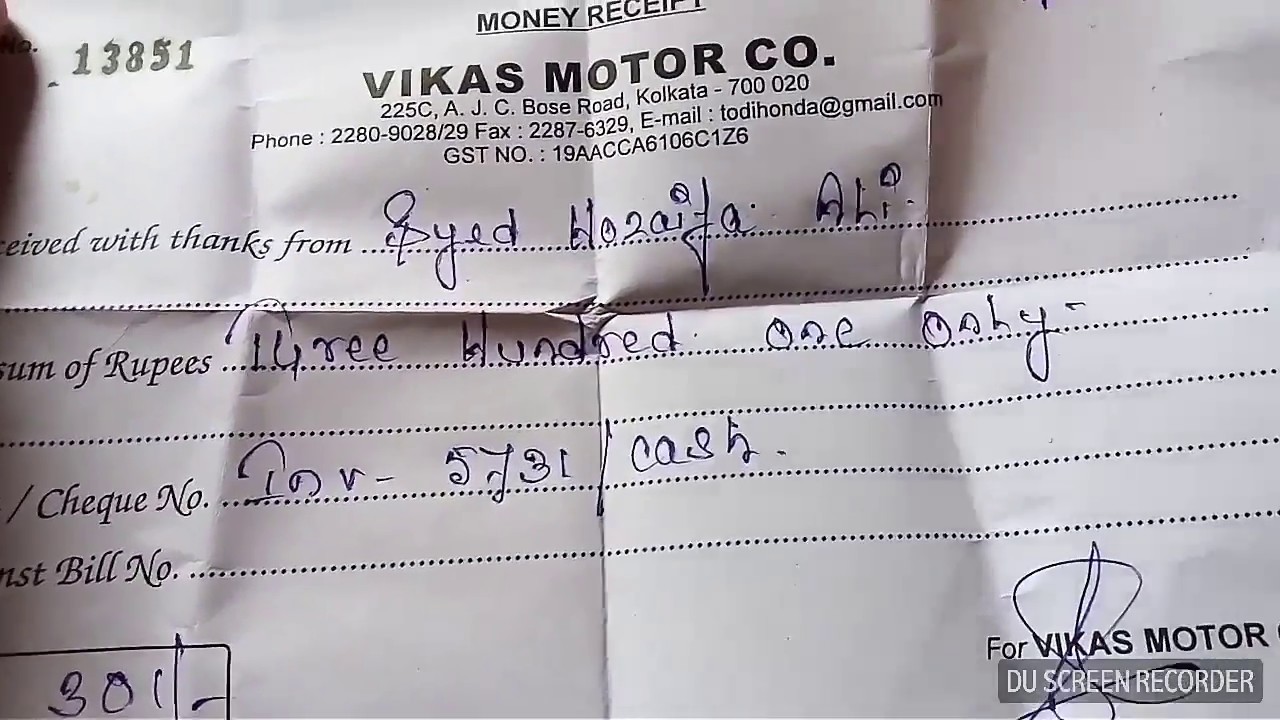 MONEY RECEIPT
No. 13851
VIKAS MOTOR CO.
225C, A. J. C. Bose Road, Kolkata - 700 020
Phone : 2280-9028/29 Fax : 2287-6329, E-mail : todihonda@gmail.com
GST NO. : 19AACCA6106C1Z6
eived with thanks from Syed Hozaifa Ali
sum of Rupees Three Hundred one only
/ Cheque No. Inv- 5731 / cash.
nst Bill No.
For VIKAS MOTOR
301/-
DU SCREEN RECORDER